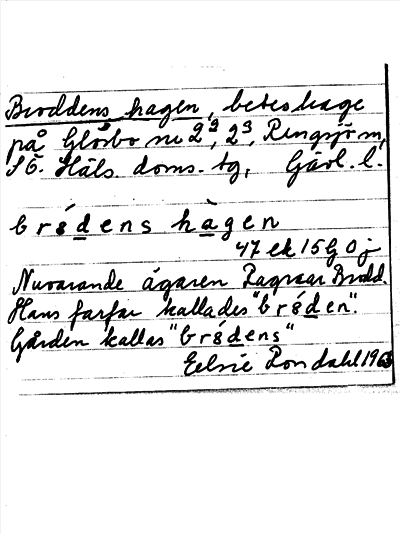 Broddens hagen, beteshage
på Glösbo nr 2⁹, 2³, Rengsjö sn,
SÖ. Häls. doms. tg, Gävl. l.
br8́dens hàgen
47 ek 15G 0j
Nuvarande ägaren Ragnar Brodd.
Hans farfar kallades "br8́den".
Gården kallas "br8́dens"
Elsie Rondahl 1963